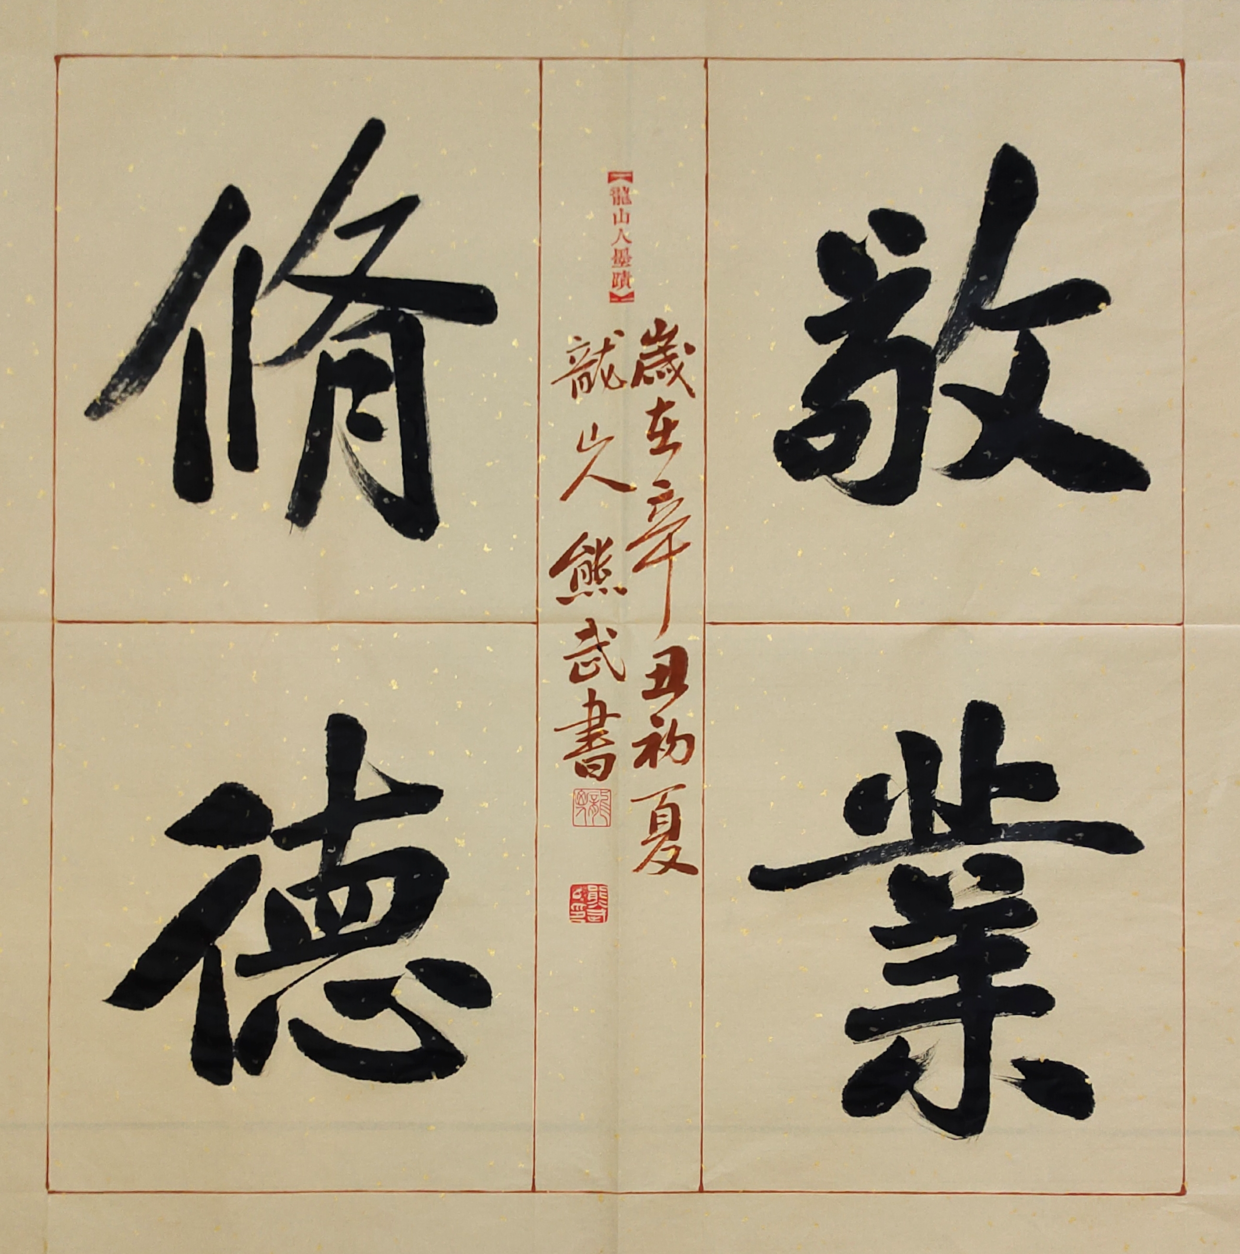 敬業
歲在辛丑初夏
【龍山人墨蹟】
龍山人熊武書
脩德